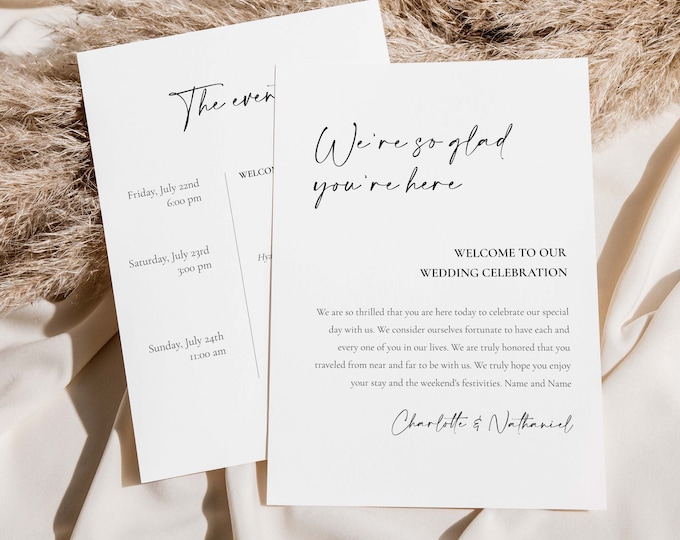 The even
Friday, July 22nd
6:00 pm
WELCOM
Saturday, July 23rd
3:00 pm
Hya
Sunday, July 24th
11:00 am
We're so glad
you're here
WELCOME TO OUR
WEDDING CELEBRATION
We are so thrilled that you are here today to celebrate our special
day with us. We consider ourselves fortunate to have each and
every one of you in our lives. We are truly honored that you
traveled from near and far to be with us. We truly hope you enjoy
your stay and the weekend's festivities. Name and Name
Charlotte & Nathaniel